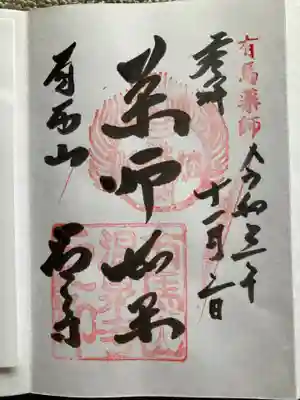 有馬薬師
令和三年
十一月三日
奉拝
薬師如来
有馬山
温泉寺